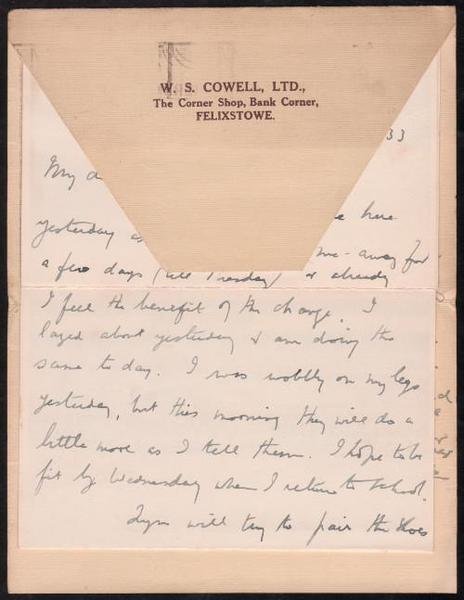 W. S. COWELL, LTD.,
The Corner Shop, Bank Corner,
FELIXSTOWE.
33
My d
here
yesterday as
away for
a few days (till Tuesday) & already
I feel the benefit of the change. I
lazed about yesterday & am doing the
same to day. I was wobbly on my legs
yesterday, but this morning they will do a
little more as I tell them. I hope to be
fit by Wednesday when I return to school.
will try to pair the shoes